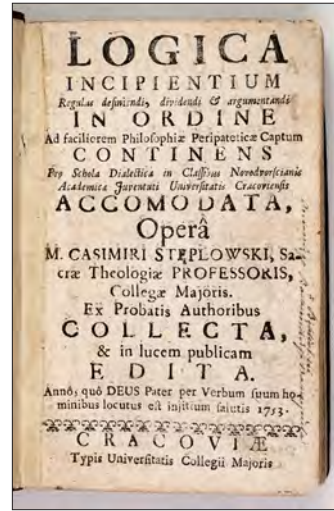 LOGICA
INCIPIENTIUM
Regulas definiendi, dividendi & argumentandi
IN ORDINE
Ad faciliorem Philosophiæ Peripateticæ Captum
CONTINENS
Pro Schola Dialectica in Classibus Novodvorscianis
Academicæ Juventuti Universitatis Cracoviensis
ACCOMODATA,
Operâ
M. CASIMIRI STĘPLOWSKI, Sa-
cræ Theologiæ PROFESSORIS,
Collegæ Majoris.
Ex Probatis Authoribus
COLLECTA,
& in lucem publicam
EDITA.
Annô, quô DEUS Pater per Verbum suum ho-
minibus locutus est initium salutis 1753.
CRACOVIÆ
Typis Universitatis Collegii Majoris